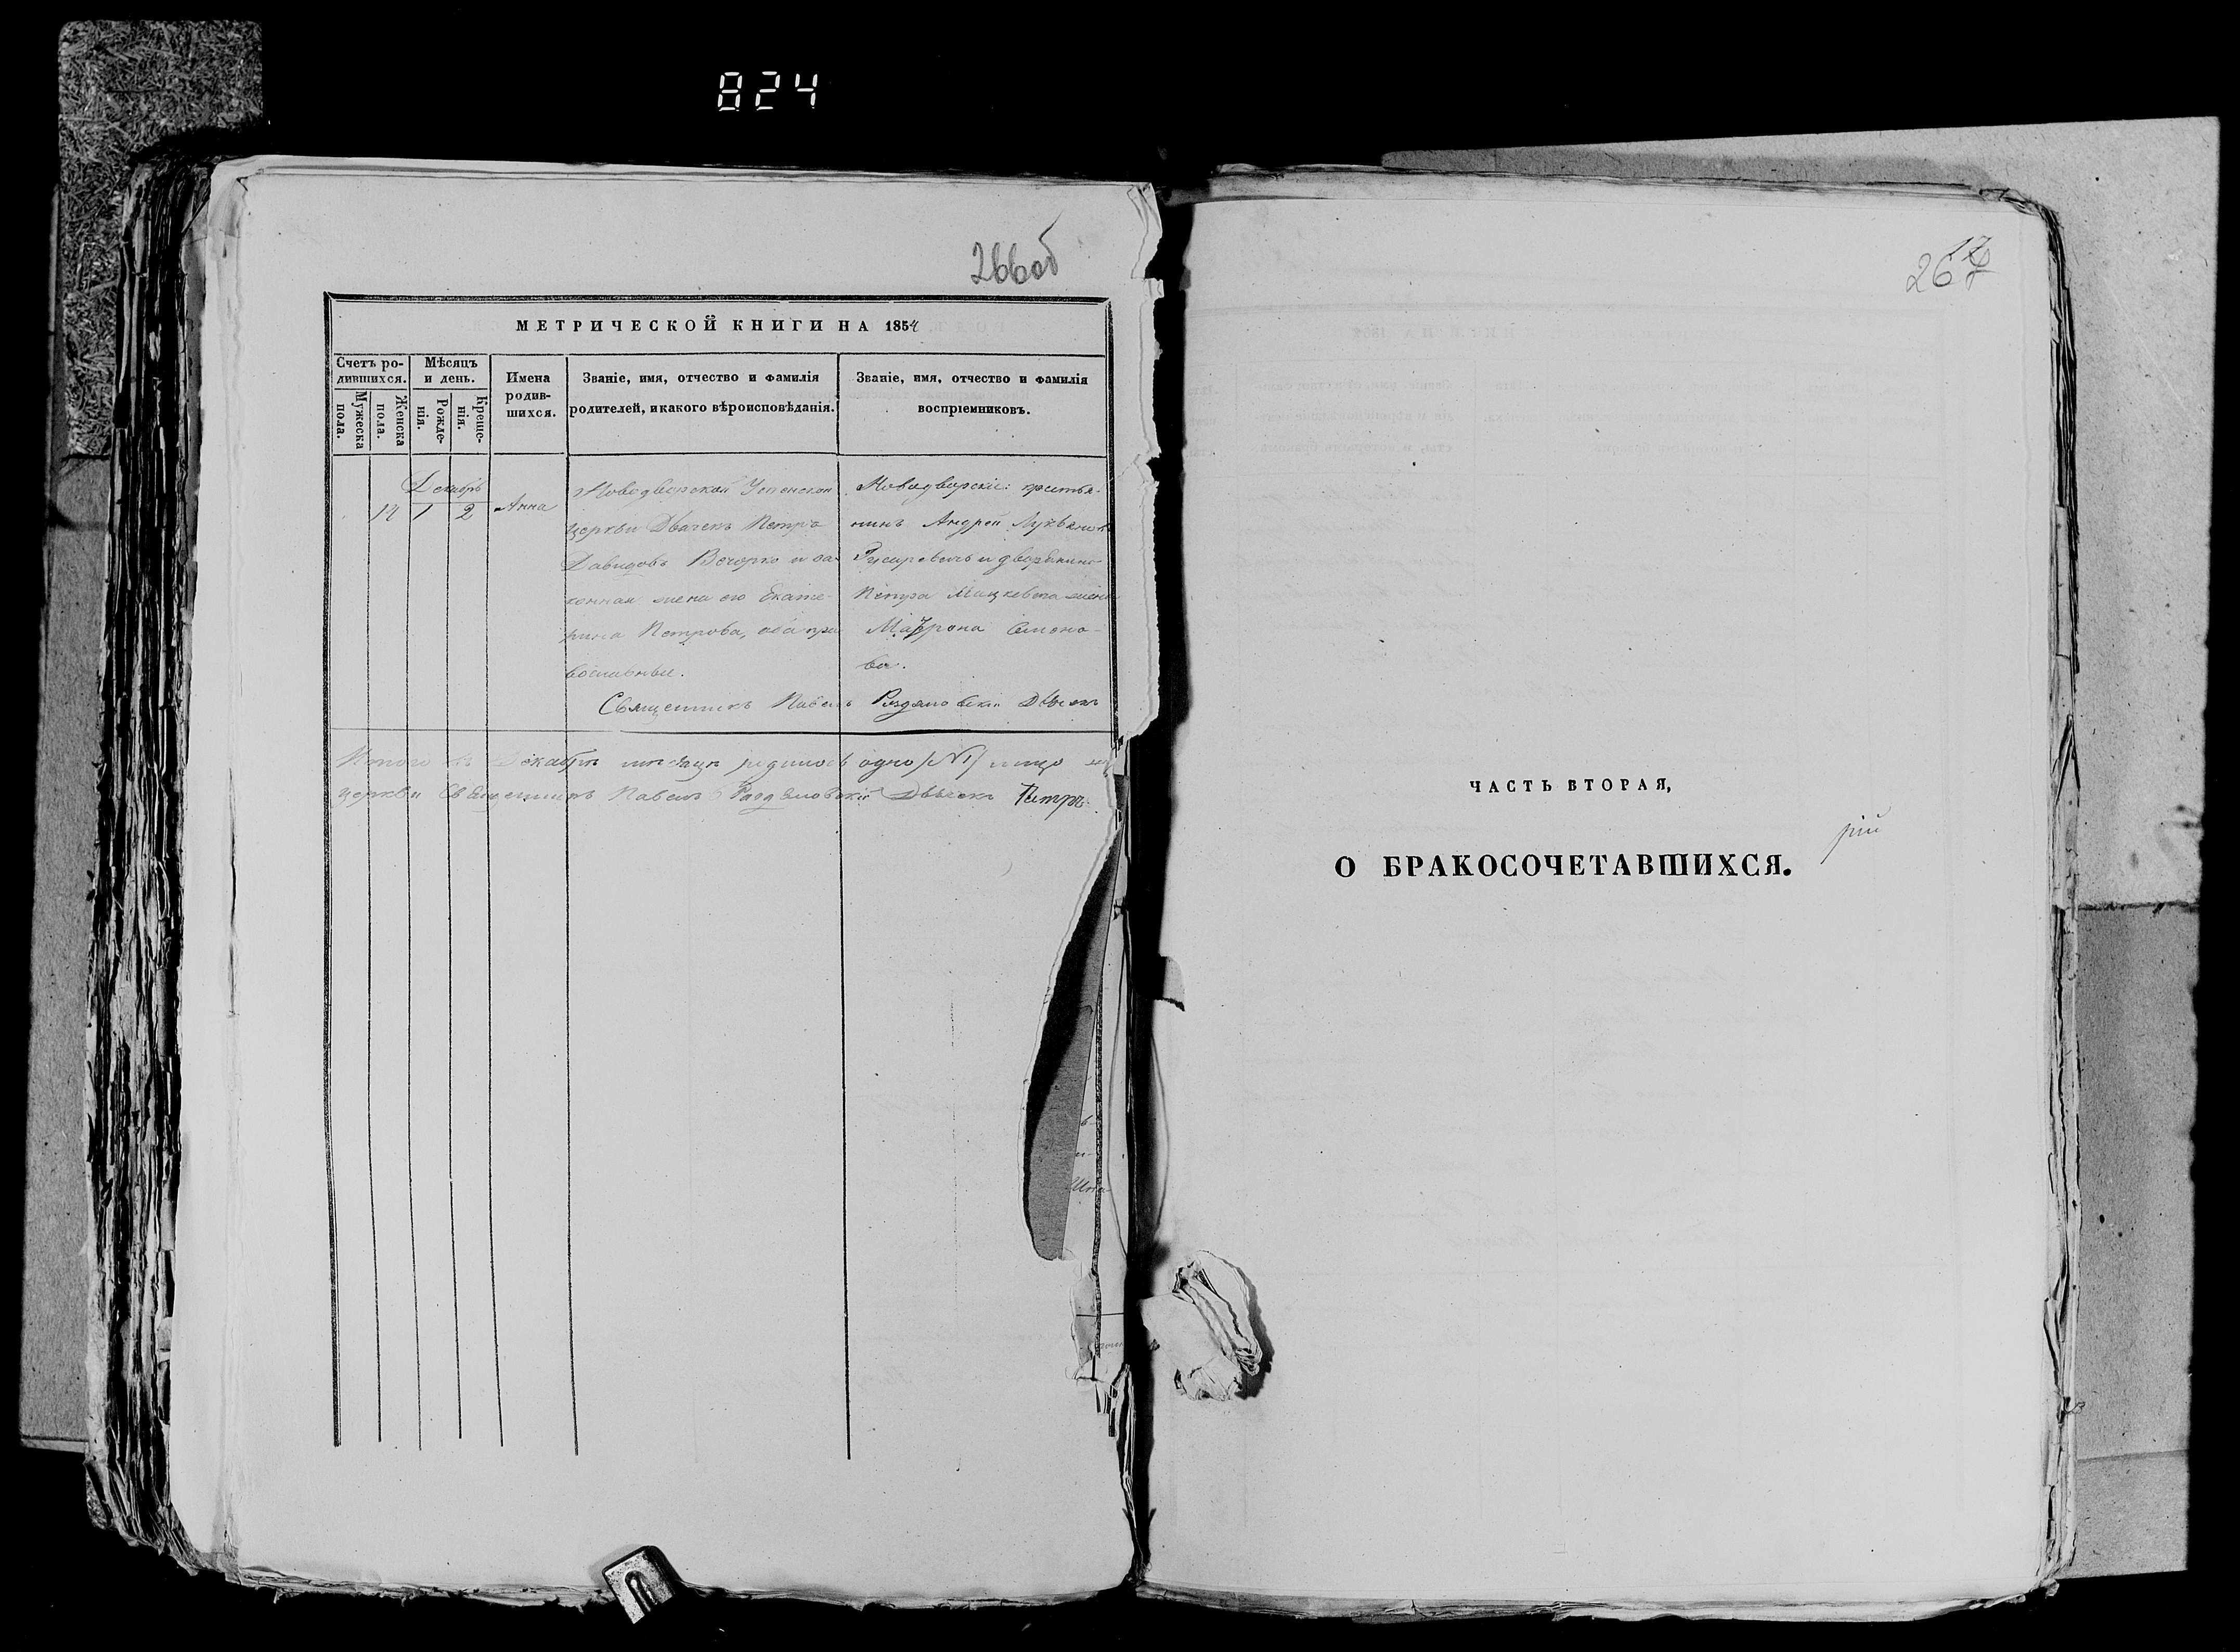 824
266об
МЕТРИЧЕСКОЙ КНИГИ НА 1854
Счетъ ро-
дившихся.
Мужеска
пола.
Женска
пола.
Мѣсяцъ
и день.
Рожде-
нія.
Креще-
нія.
Имена
родив-
шихся.
Званіе, имя, отчество и фамилія
родителей, и какого вѣроисповѣданія.
Званіе, имя, отчество и фамилія
воспріемниковъ.
Декабрь
14 1 2 Анна
Новодворской Успенской
церкви Дьячекъ Петръ
Давидовъ Вечорко и за-
конная жена его Екате-
рина Петрова, оба пра
вославные.
Новодворскіе: крестья-
нинъ Андрей
и дворянина
Петра Мацкевича жена
Маѵрона Семено-
ва.
Священникъ Павелъ Дьячекъ
Итого въ Декабрѣ мѣсяцѣ родилось одно /№1/ лицо
церкви Священникъ Павелъ Дьячекъ Петръ
267
17
ЧАСТЬ ВТОРАЯ,
рій
О БРАКОСОЧЕТАВШИХСЯ.